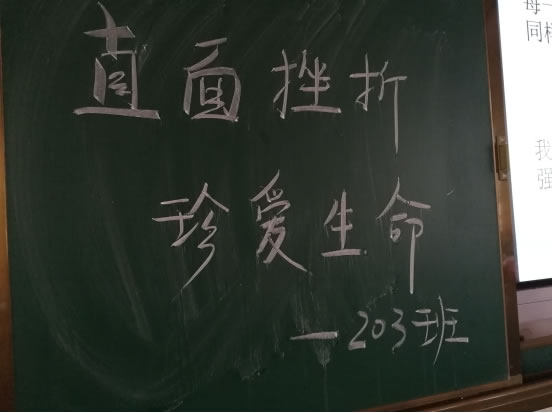 直面挫折
珍爱生命
—203班
每一
同样
我
强